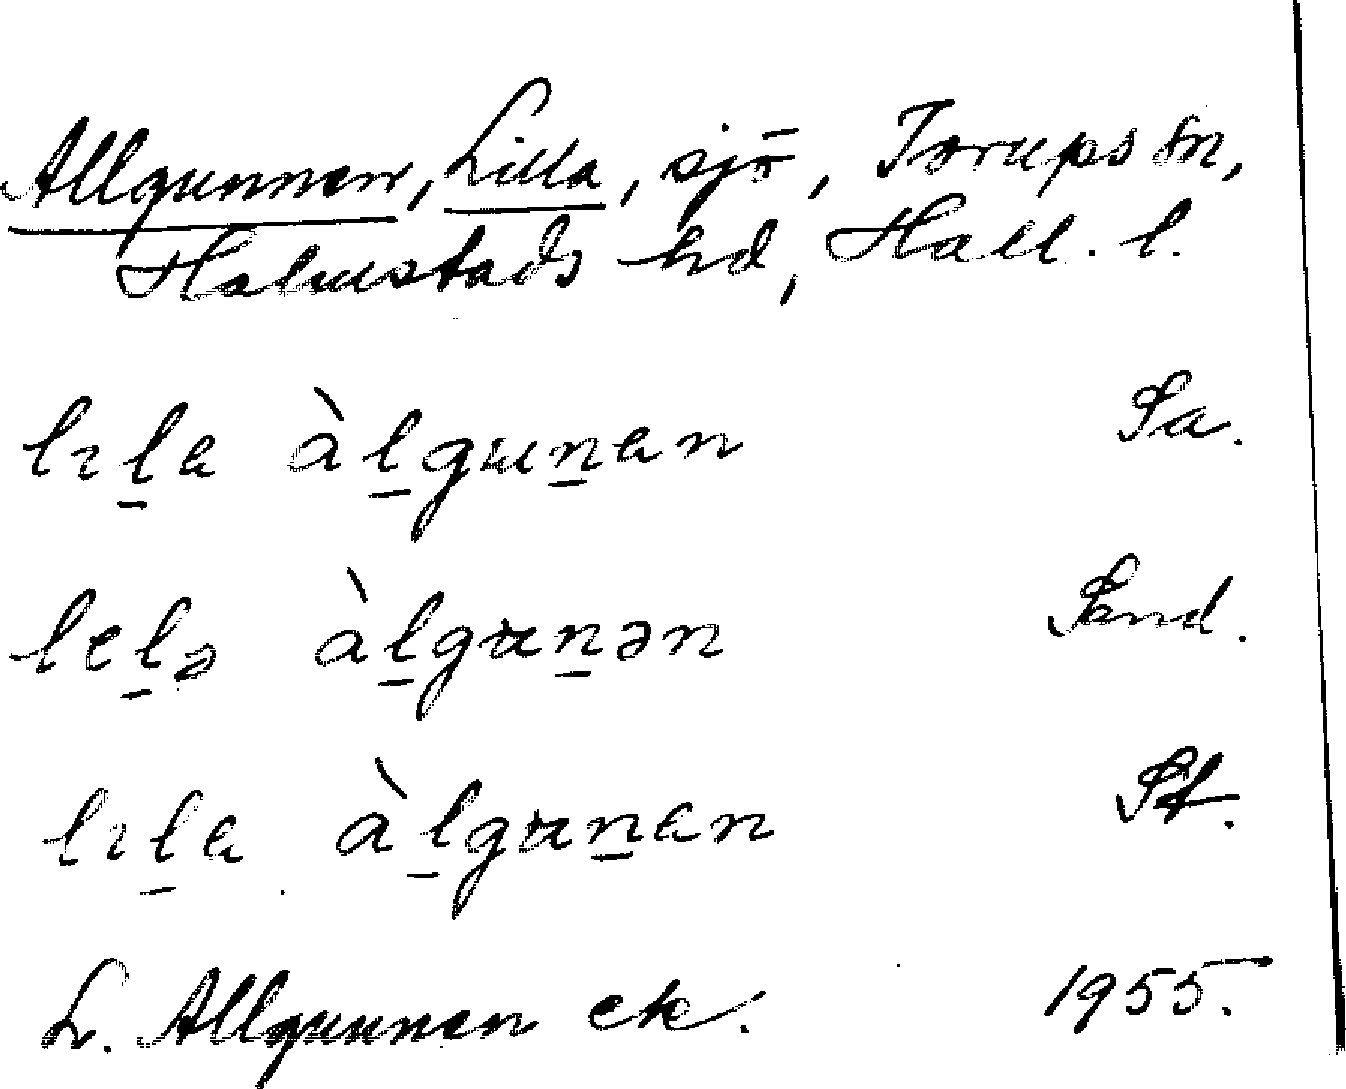 Allgunnen, Lilla, sjö, Torups sn,
Halmstads hd, Hall. l.
lıl̠a àl̠gun̠an Sa.
lel̠ə àl̠gɯn̠ən Sand.
lıl̠a àl̠gɯn̠an St.
L. Allgunnen ek. 1955.